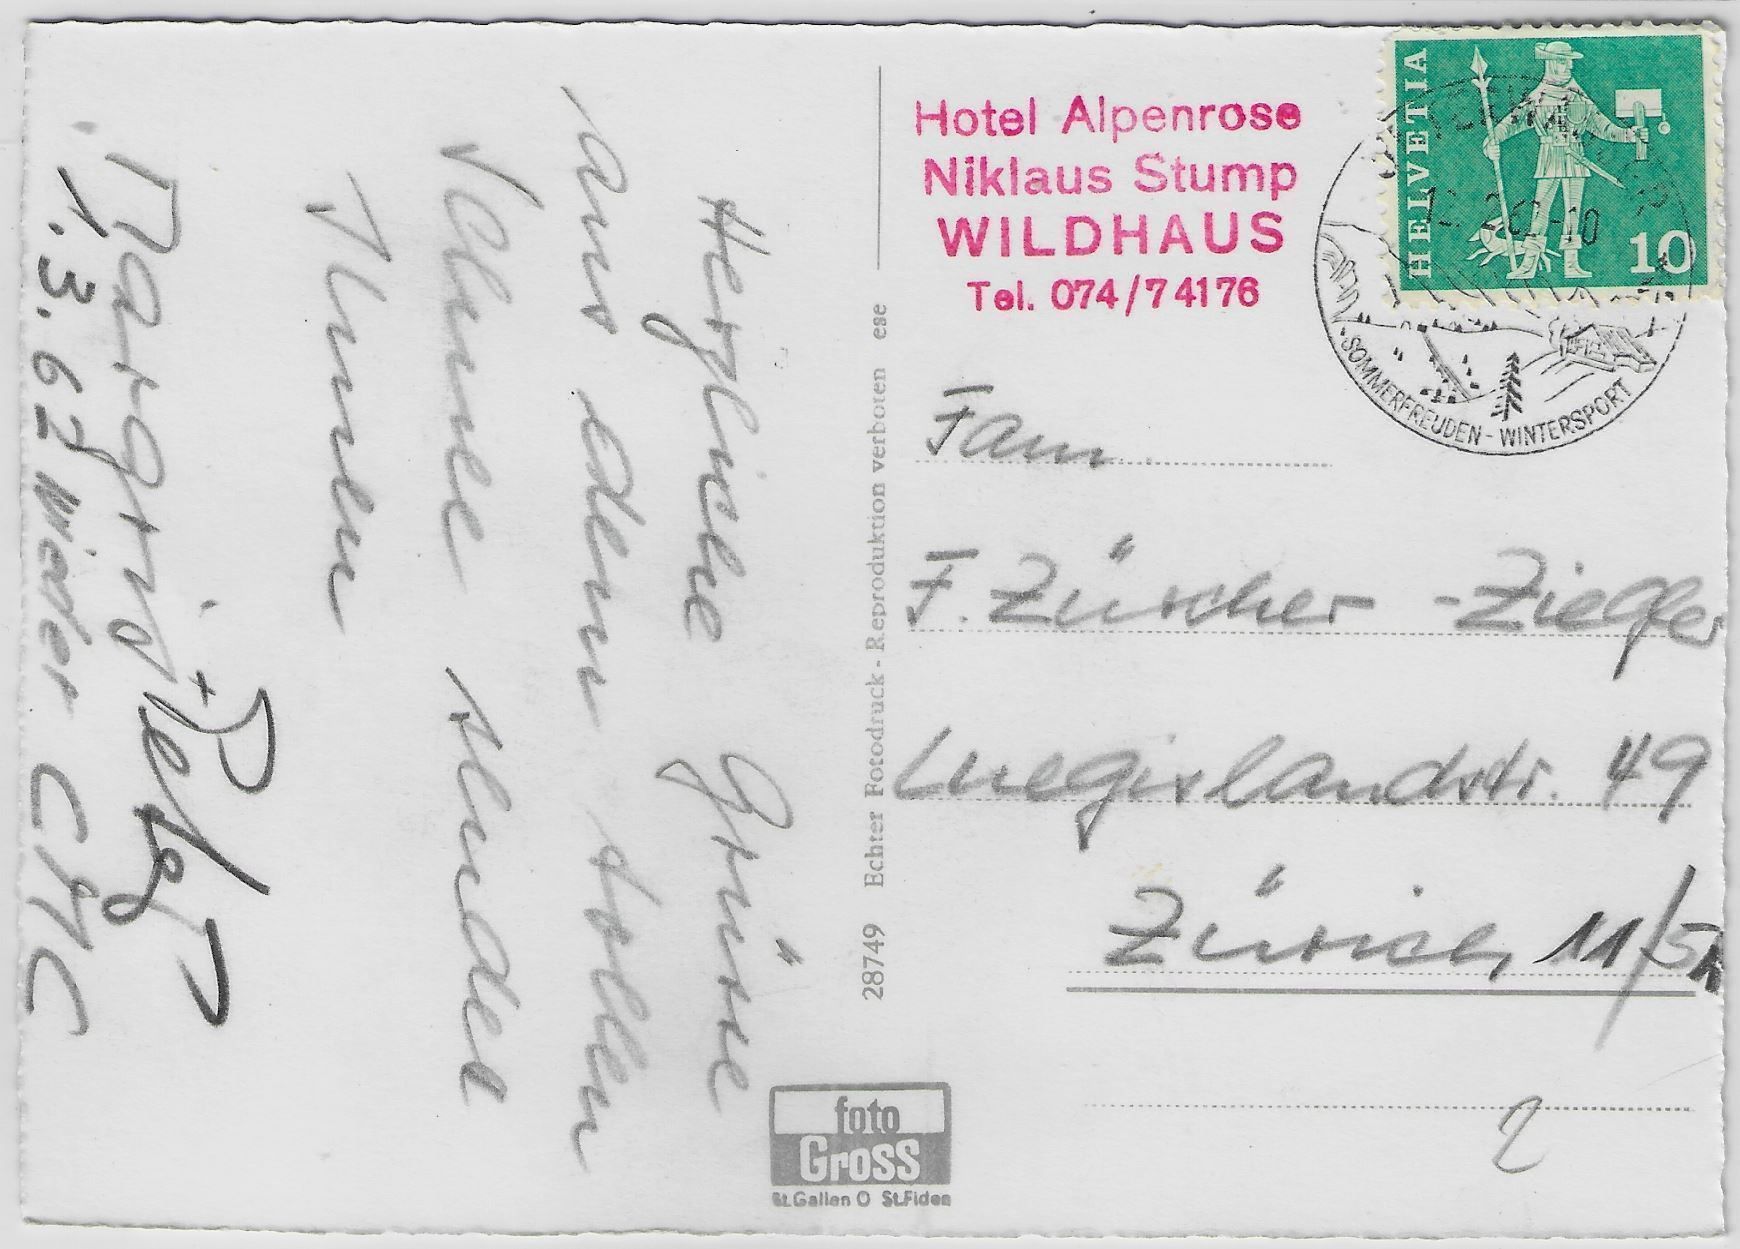 Herzliche Grüsse
aus dem tollen
Schnee sendet
Ihnen
Margrid + Peter
1.3.62 wieder CMC
28749 Echter Fotodruck - Reproduktion verboten ese
foto
Gross
St.Gallen O St.Fiden
Hotel Alpenrose
Niklaus Stump
WILDHAUS
Tel. 074/74176
HELVETIA
10
SOMMERFREUDEN - WINTERSPORT
Fam.
F. Zürcher - Ziegler
Luegislandstr. 49
Zürich 11/51
2